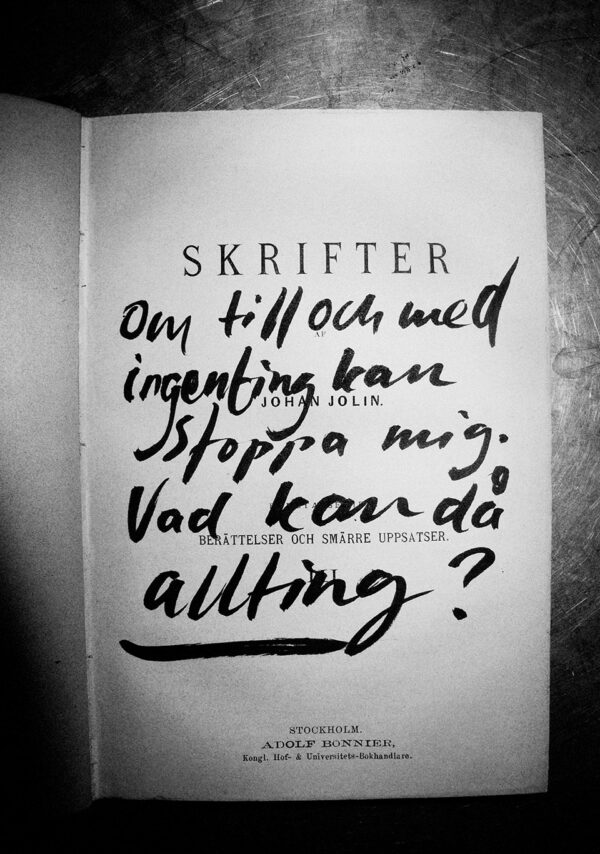 SKRIFTER
Om till och med
AF
ingenting kan
JOHAN JOLIN.
stoppa mig.
Vad kan då
BERÄTTELSER OCH SMÄRRE UPPSATSER.
allting?
STOCKHOLM.
ADOLF BONNIER,
Kongl. Hof- & Universitets-Bokhandlare.